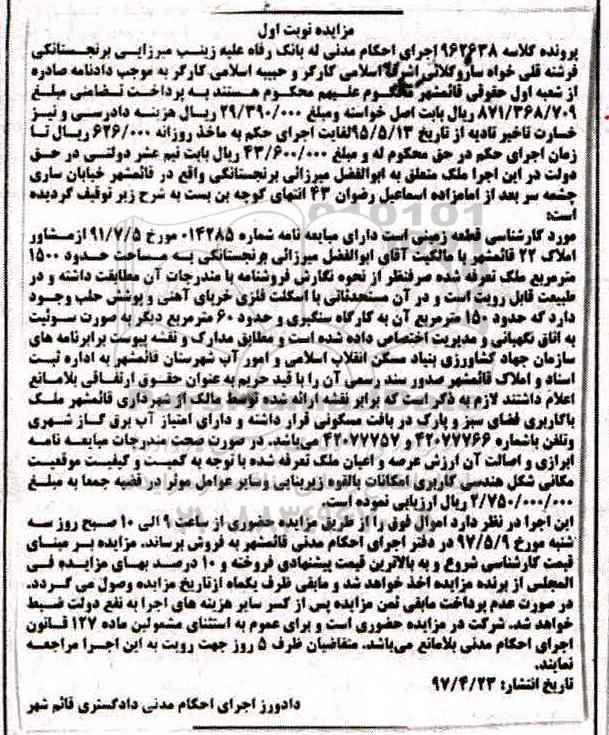 مزایده نوبت اول
پرونده کلاسه ۹۶۲۶۳۸ اجرای احکام مدنی له بانک رفاه علیه زینب میرزایی برنجستانکی
فرشته قلی خواه ساروکلائی اسلامی کارگر و حبیبه اسلامی کارگر به موجب دادنامه صادره
از شعبه اول حقوقی قائمشهر محکوم علیهم محکوم هستند به پرداخت تضامنی مبلغ
۸۷۱/۳۶۸/۷۰۹ ریال بابت اصل خواسته ومبلغ ۲۹/۳۹۰/۰۰۰ ریال هزینه دادرسی و نیز
خسارت تاخیر تادیه از تاریخ ۹۵/۵/۱۳لغایت اجرای حکم به ماخذ روزانه ۶۲۶/۰۰۰ ریال تا
زمان اجرای حکم در حق محکوم له و مبلغ ۴۳/۶۰۰/۰۰۰ ریال بابت نیم عشر دولتی در حق
دولت در این اجرا ملک متعلق به ابوالفضل میرزائی برنجستانکی واقع در قائمشهر خیابان ساری
چشمه سر بعد از امامزاده اسماعیل رضوان ۴۳ انتهای کوچه بن بست به شرح زیر توقیف گردیده
است:
مورد کارشناسی قطعه زمینی است دارای مبایعه نامه شماره ۰۱۴۲۸۵ مورخ ۹۱/۷/۵ ازمشاور
املاک ۲۲ قائمشهر با مالکیت آقای ابوالفضل میرزائی برنجستانکی به مساحت حدود ۱۵۰۰
مترمربع ملک تعرفه شده صرفنظر از نحوه نگارش فروشنامه با مندرجات آن مطابقت داشته و در
طبیعت قابل رویت است و در آن مستحدثاتی با اسکلت فلزی خرپای آهنی و پوشش حلب وجود
دارد که حدود ۱۵۰ مترمربع آن به کارگاه سنگبری و حدود ۶۰ مترمربع دیگر به صورت سوئیت
به اتاق نگهبانی و مدیریت اختصاص داده شده است و مطابق مدارک و نقشه پیوست برابرنامه های
سازمان جهاد کشاورزی بنیاد مسکن انقلاب اسلامی و امور آب شهرستان قائمشهر به اداره ثبت
اسناد و املاک قائمشهر صدور سند رسمی آن را با قید حریم به عنوان حقوق ارتفاقی بلامانع
اعلام داشتند لازم به ذکر است که برابر نقشه ارائه شده توسط مالک از شهرداری قائمشهر ملک
باکاربری فضای سبز و پارک در بافت مسکونی قرار داشته و دارای امتیاز آب برق گاز شهری
وتلفن باشماره ۴۲۰۷۷۷۶۶ و ۴۲۰۷۷۷۵۷ می‌باشد. در صورت صحت مندرجات مبایعه نامه
ابرازی و اصالت آن ارزش عرصه و اعیان ملک تعرفه شده با توجه به کمیت و کیفیت موقعیت
مکانی شکل هندسی کاربری امکانات بالقوه زیربنایی وسایر عوامل موثر در قضیه جمعا به مبلغ
۲/۷۵۰/۰۰۰/۰۰۰ ریال ارزیابی نموده است.
این اجرا در نظر دارد اموال فوق را از طریق مزایده حضوری از ساعت ۹ الی ۱۰ صبح روز سه
شنبه مورخ ۹۷/۵/۹ در دفتر اجرای احکام مدنی قائمشهر به فروش برساند. مزایده بر مبنای
قیمت کارشناسی شروع و به بالاترین قیمت پیشنهادی فروخته و ۱۰ درصد بهای مزایده فی
المجلس از برنده مزایده اخذ خواهد شد و مابقی ظرف یکماه ازتاریخ مزایده وصول می گردد.
در صورت عدم پرداخت مابقی ثمن مزایده پس از کسر سایر هزینه های اجرا به نفع دولت ضبط
خواهد شد. شرکت در مزایده حضوری است و برای عموم به استثنای مشمولین ماده ۱۲۷ قانون
اجرای احکام مدنی بلامانع می‌باشد. متقاضیان ظرف ۵ روز جهت رویت به این اجرا مراجعه
نمایند.
تاریخ انتشار: ۹۷/۴/۲۳
دادورز اجرای احکام مدنی دادگستری قائم شهر